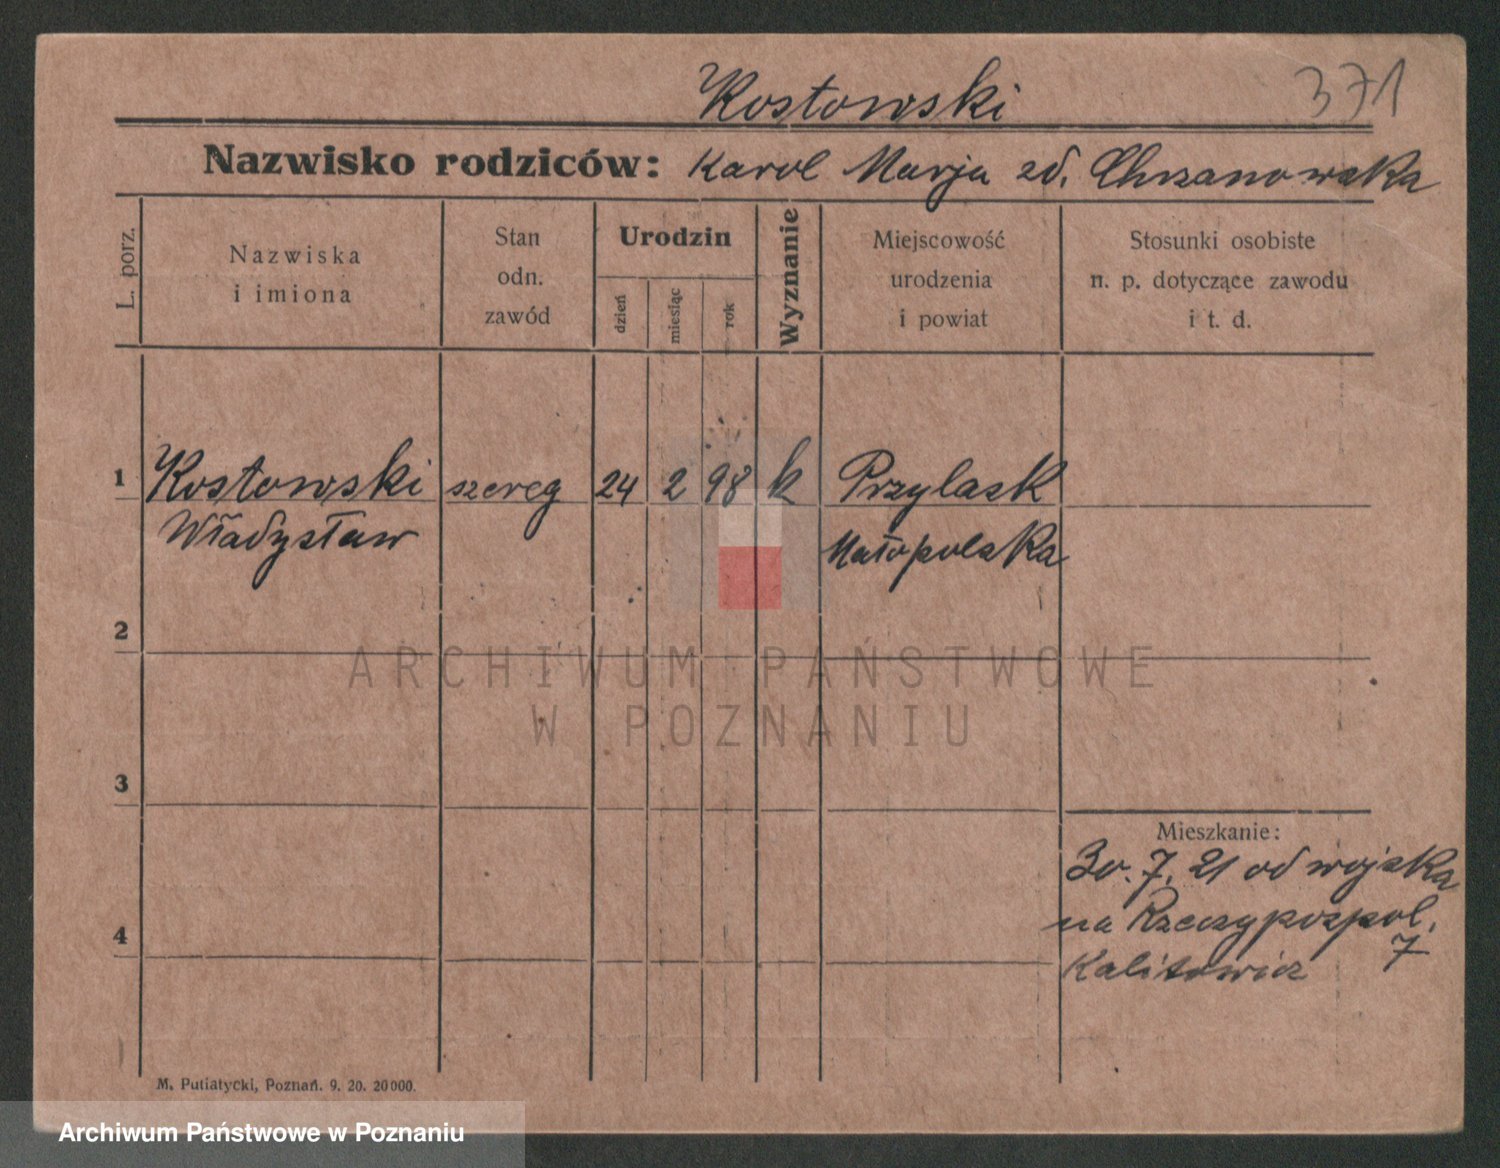 Kostowski 371
Nazwisko rodziców: Karol Marja zd. Chrzanowska
L. porz.
Nazwiska
i imiona
Stan
odn.
zawód
Urodzin
dzień
miesiąc
rok
Wyznanie
Miejscowość
urodzenia
i powiat
Stosunki osobiste
n. p. dotyczące zawodu
i t. d.
1 Kostowski szereg 24 2 98 k Przylask
Władysław Małopolska
2
ARCHIWUM PAŃSTWOWE
W POZNANIU
3
Mieszkanie:
30. 7. 21 od wojska
na Rzeczypospol. 7
4
Kalitowicz
M. Putiatycki, Poznań. 9. 20. 20000.
Archiwum Państwowe w Poznaniu